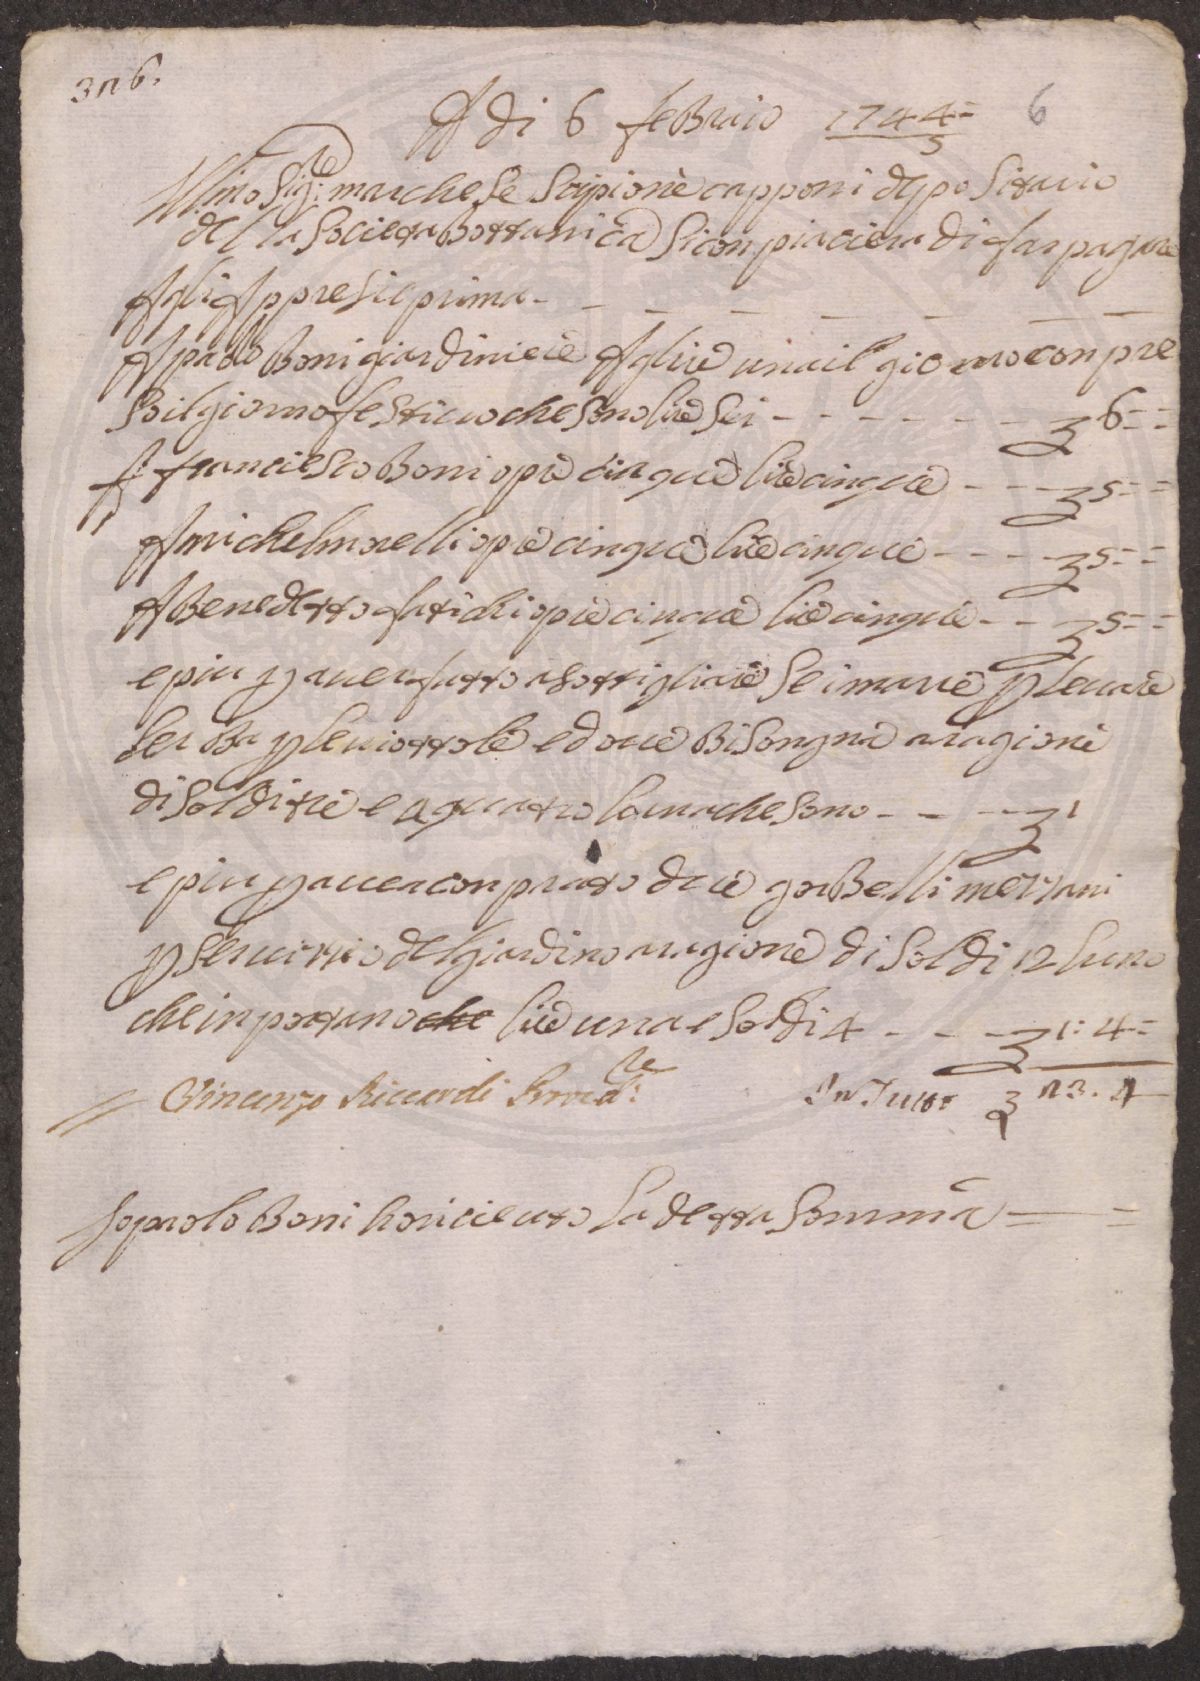 3 n 6.
A di 6 feBraio 1744= 6
5
Ill.mo Sig:re marchese Scipione capponi depositario
della Societa Bottanica Si conpiaciera di far pagare
A gli Appresi e prima - - - - - - -
A paolo Boni giardiniere A lire una il giorno conpre
so il giorno festiuo che sono lire sei - - - - - - 6 = =
A franciesco Boni opre cinque lire cinque - - - 5 = =
A michel opre cinque lire cinque - - - - 5 = =
A Benedetto fatichi opre cinque lire cinque - - - 5 = =
e piu p auer fatto asottigliare sei mare p leuare
lerBa p le uiottole e doue Bisongna a ragione
di soldi tre e a quatro luna che sono - - - - 1
e piu p auer conprato due gorBelli mezzani
p seruitio del giardino a ragione di soldi 12 luno
che inportano che lire una e soldi 4 - - - 1: 4 =
Vincenzo Riccardi Proved:re In Tutto 23. 4
Io paolo Boni ho riceuuto la detta somma = =